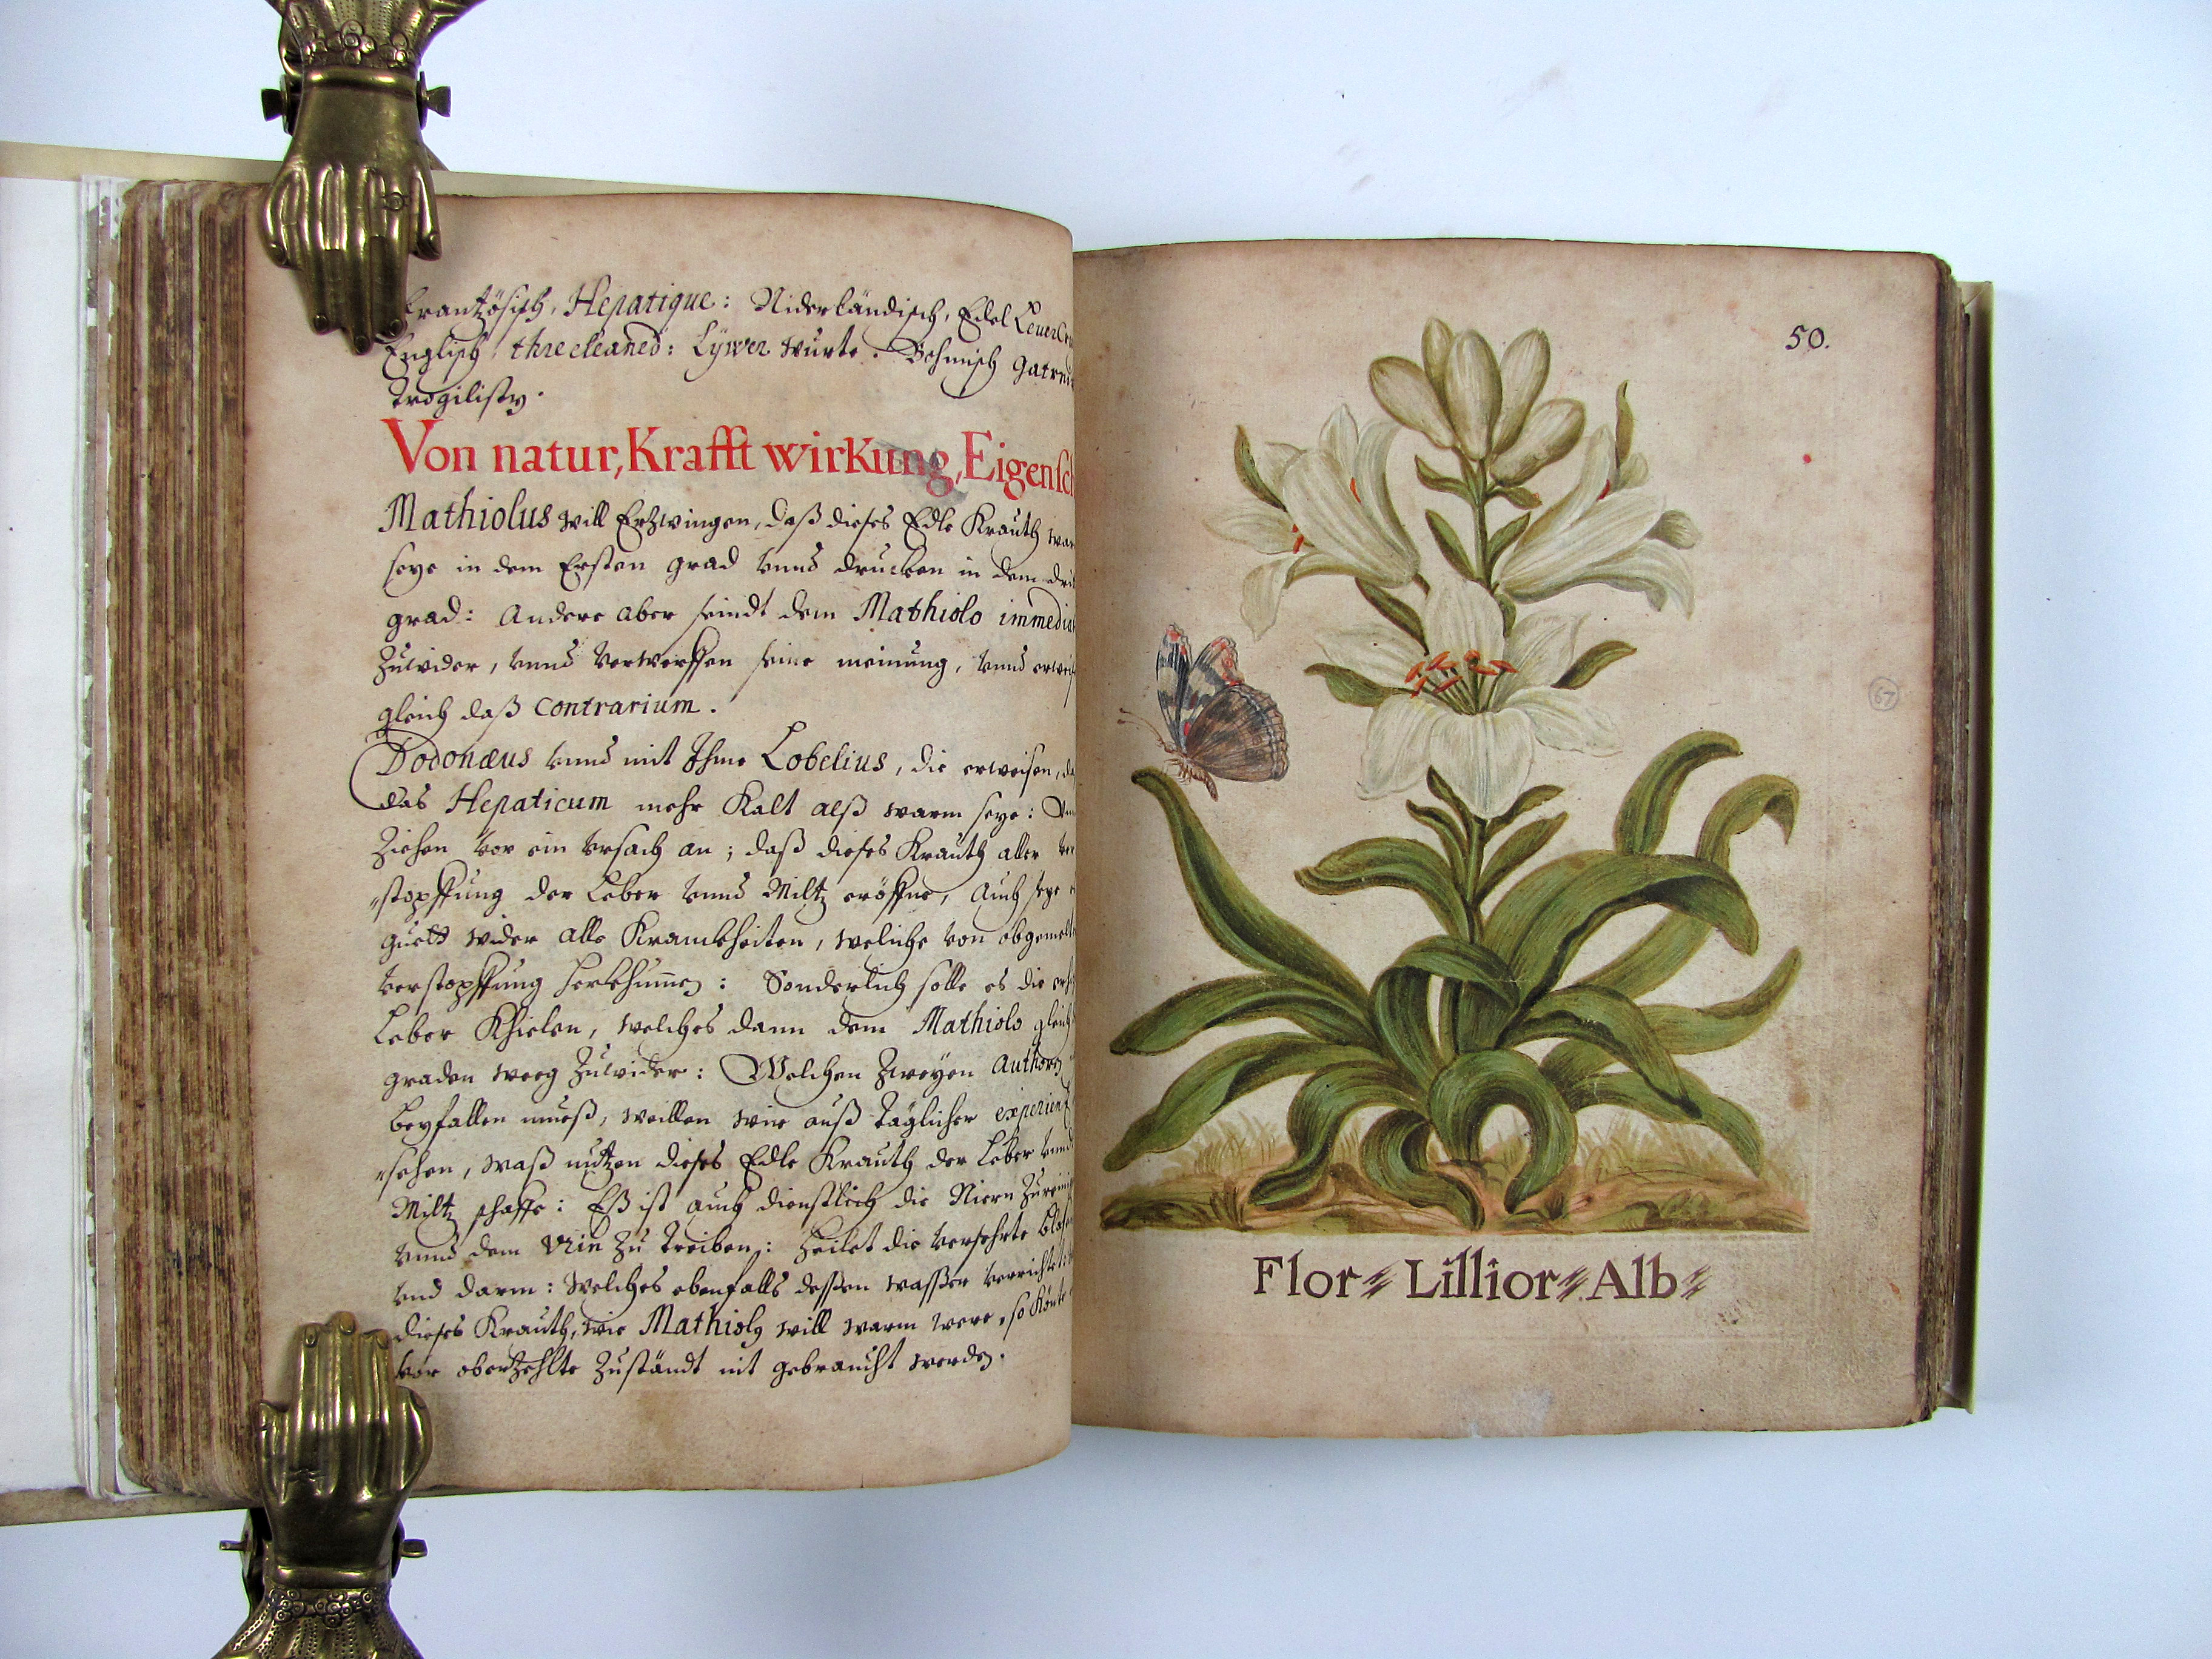 Frantzösisch, Hepatique: Niderländisch, Edel
Englisch, threeleaned: Lÿwer wurte. Böhmisch
Von natur, Krafft wirkung, Eigensch
Mathiolus will Erzwingen, daß dieses Edle Krauth
seye in dem Ersten grad vnnd drucken in dem
grad: Andere aber seindt dem Mathiolo
Zuwider, vnnd verwerffen seine meinung, vnnd
gleich daß contrarium.
Dodonæus vnnd mit Ihme Lobelius, die erweisen,
das Hepaticum mehr Kalt alß warm seye:
Ziehen vor ein vrsach an; daß dieses Krauth aller
stopffung der Leber vnnd Miltz eröffne, Auch seye
guett wider alle Kranckheiten, weliche von
verstopffung herkhum̄en: Sonderlich solle es die
Leber Khielen, welches dann dem Mathiolo
graden weeg Zuwider: Welchen Zweyen Authorn
beyfallen mueß, weillen wir auß Täglicher
sehen, waß nutzen dieses Edle Krauth der Leber vnnd
Miltz schaffe: Eß ist auch dienstlich die Niern
vnnd dem Vrin Zu treiben: heilet die versehrte
vnd darm: Welches ebenfalls dessen wasser
dieses Krauth, wie Mathioly will warm were, so
vor obertzehlte Zuständt nit gebraucht werden.
50.
67
Flor Lillior Alb